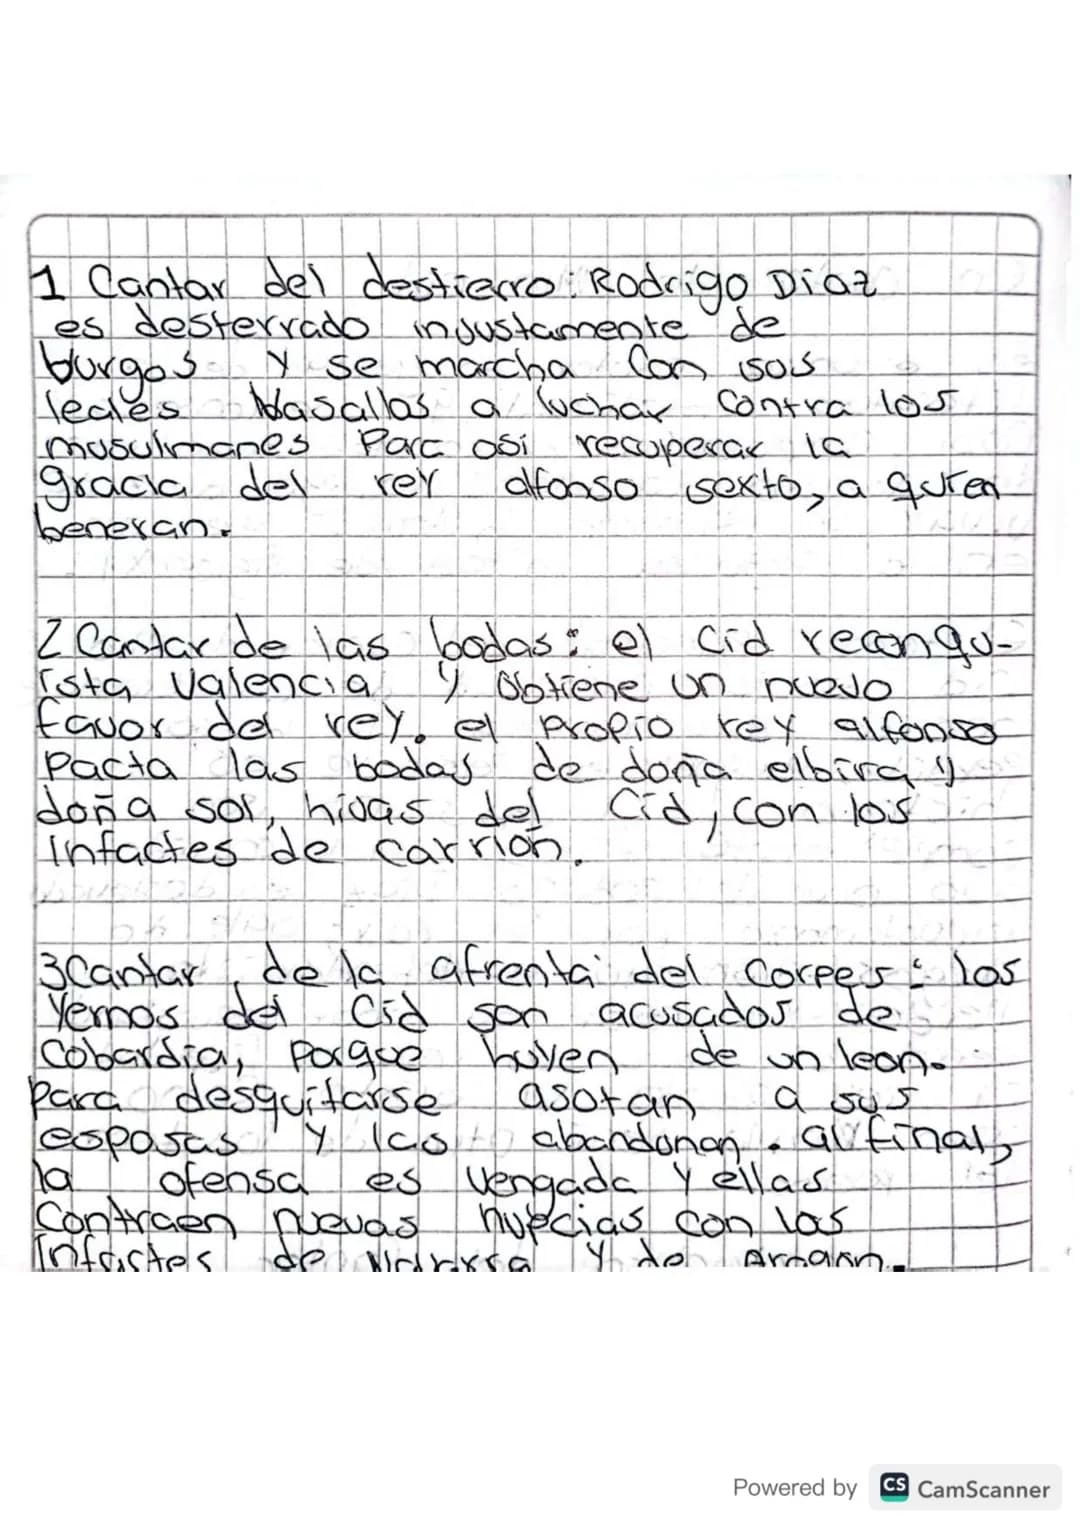 1 Cantar del destierro: Rodrigo Diaz
es desterrado injustamente de
burgos y se marcha Con sus
leales Vasallos a luchar Contra los
musulmanes Para asi recuperar la
gracia del rey alfonso sexto, a quien
beneran.
2 Cantar de las bodas: el Cid reconqu-
ista Valencia y Obtiene un nuevo
favor del rey. el propio rey alfonso
Pacta las bodas de doña elbira y
doña sol, hijas del Cid, con los
Infactes de carrión.
3Cantar de la afrenta del Corpes: los
Yernos del Cid son acusados de
Cobardia, Porque huyen de un leon.
Para desquitarse asotan a sus
esposas y las abandonan. al final,
la ofensa es Vengada y ellas
Contraen nuevas nupcias con los
Infactes de Navarra y de Aragon.
Powered by CS CamScanner